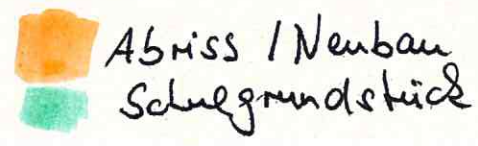 Abriss / Neubau
Schulgrundstück